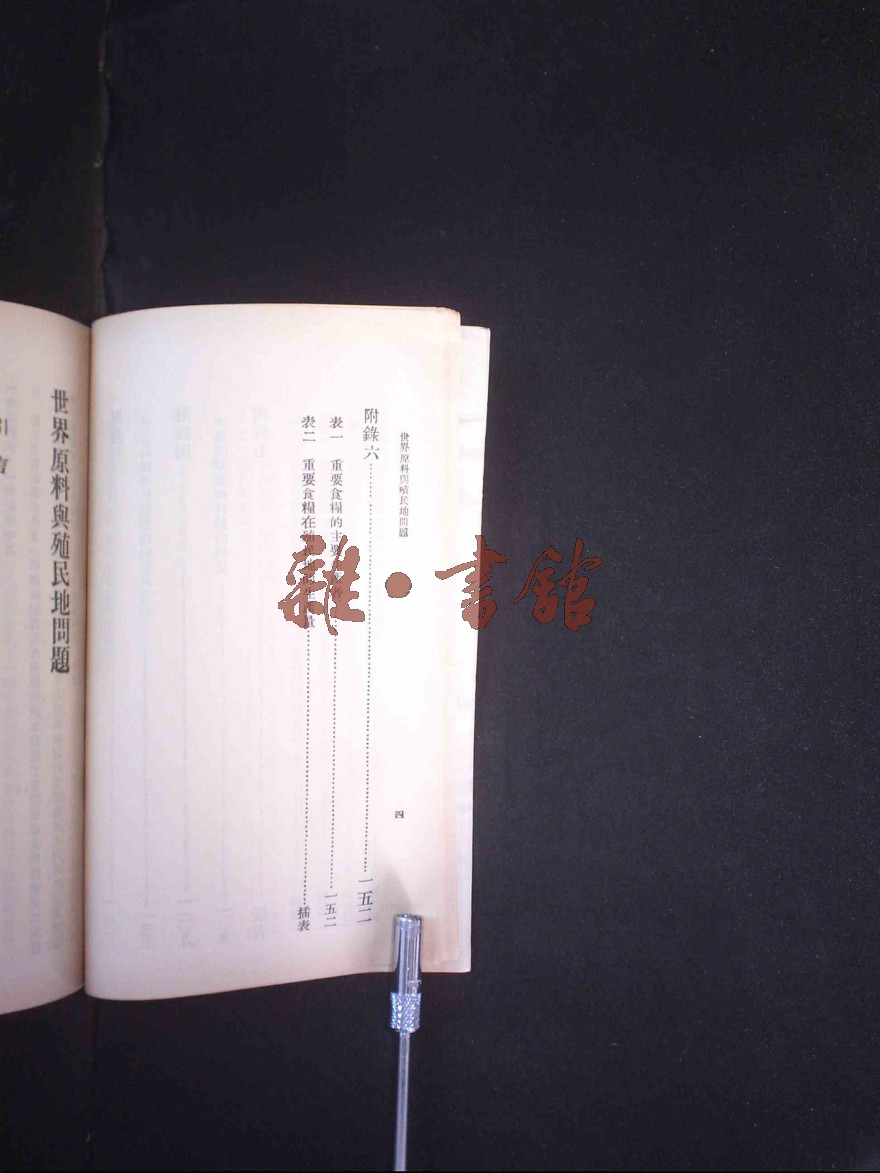 世界原料與殖民地問題
四
附錄六……一五二
表一 重要食糧的主要……一五二
表二 重要食糧在殖民地……量……插表
世界原料與殖民地問題
引言
雜·書館